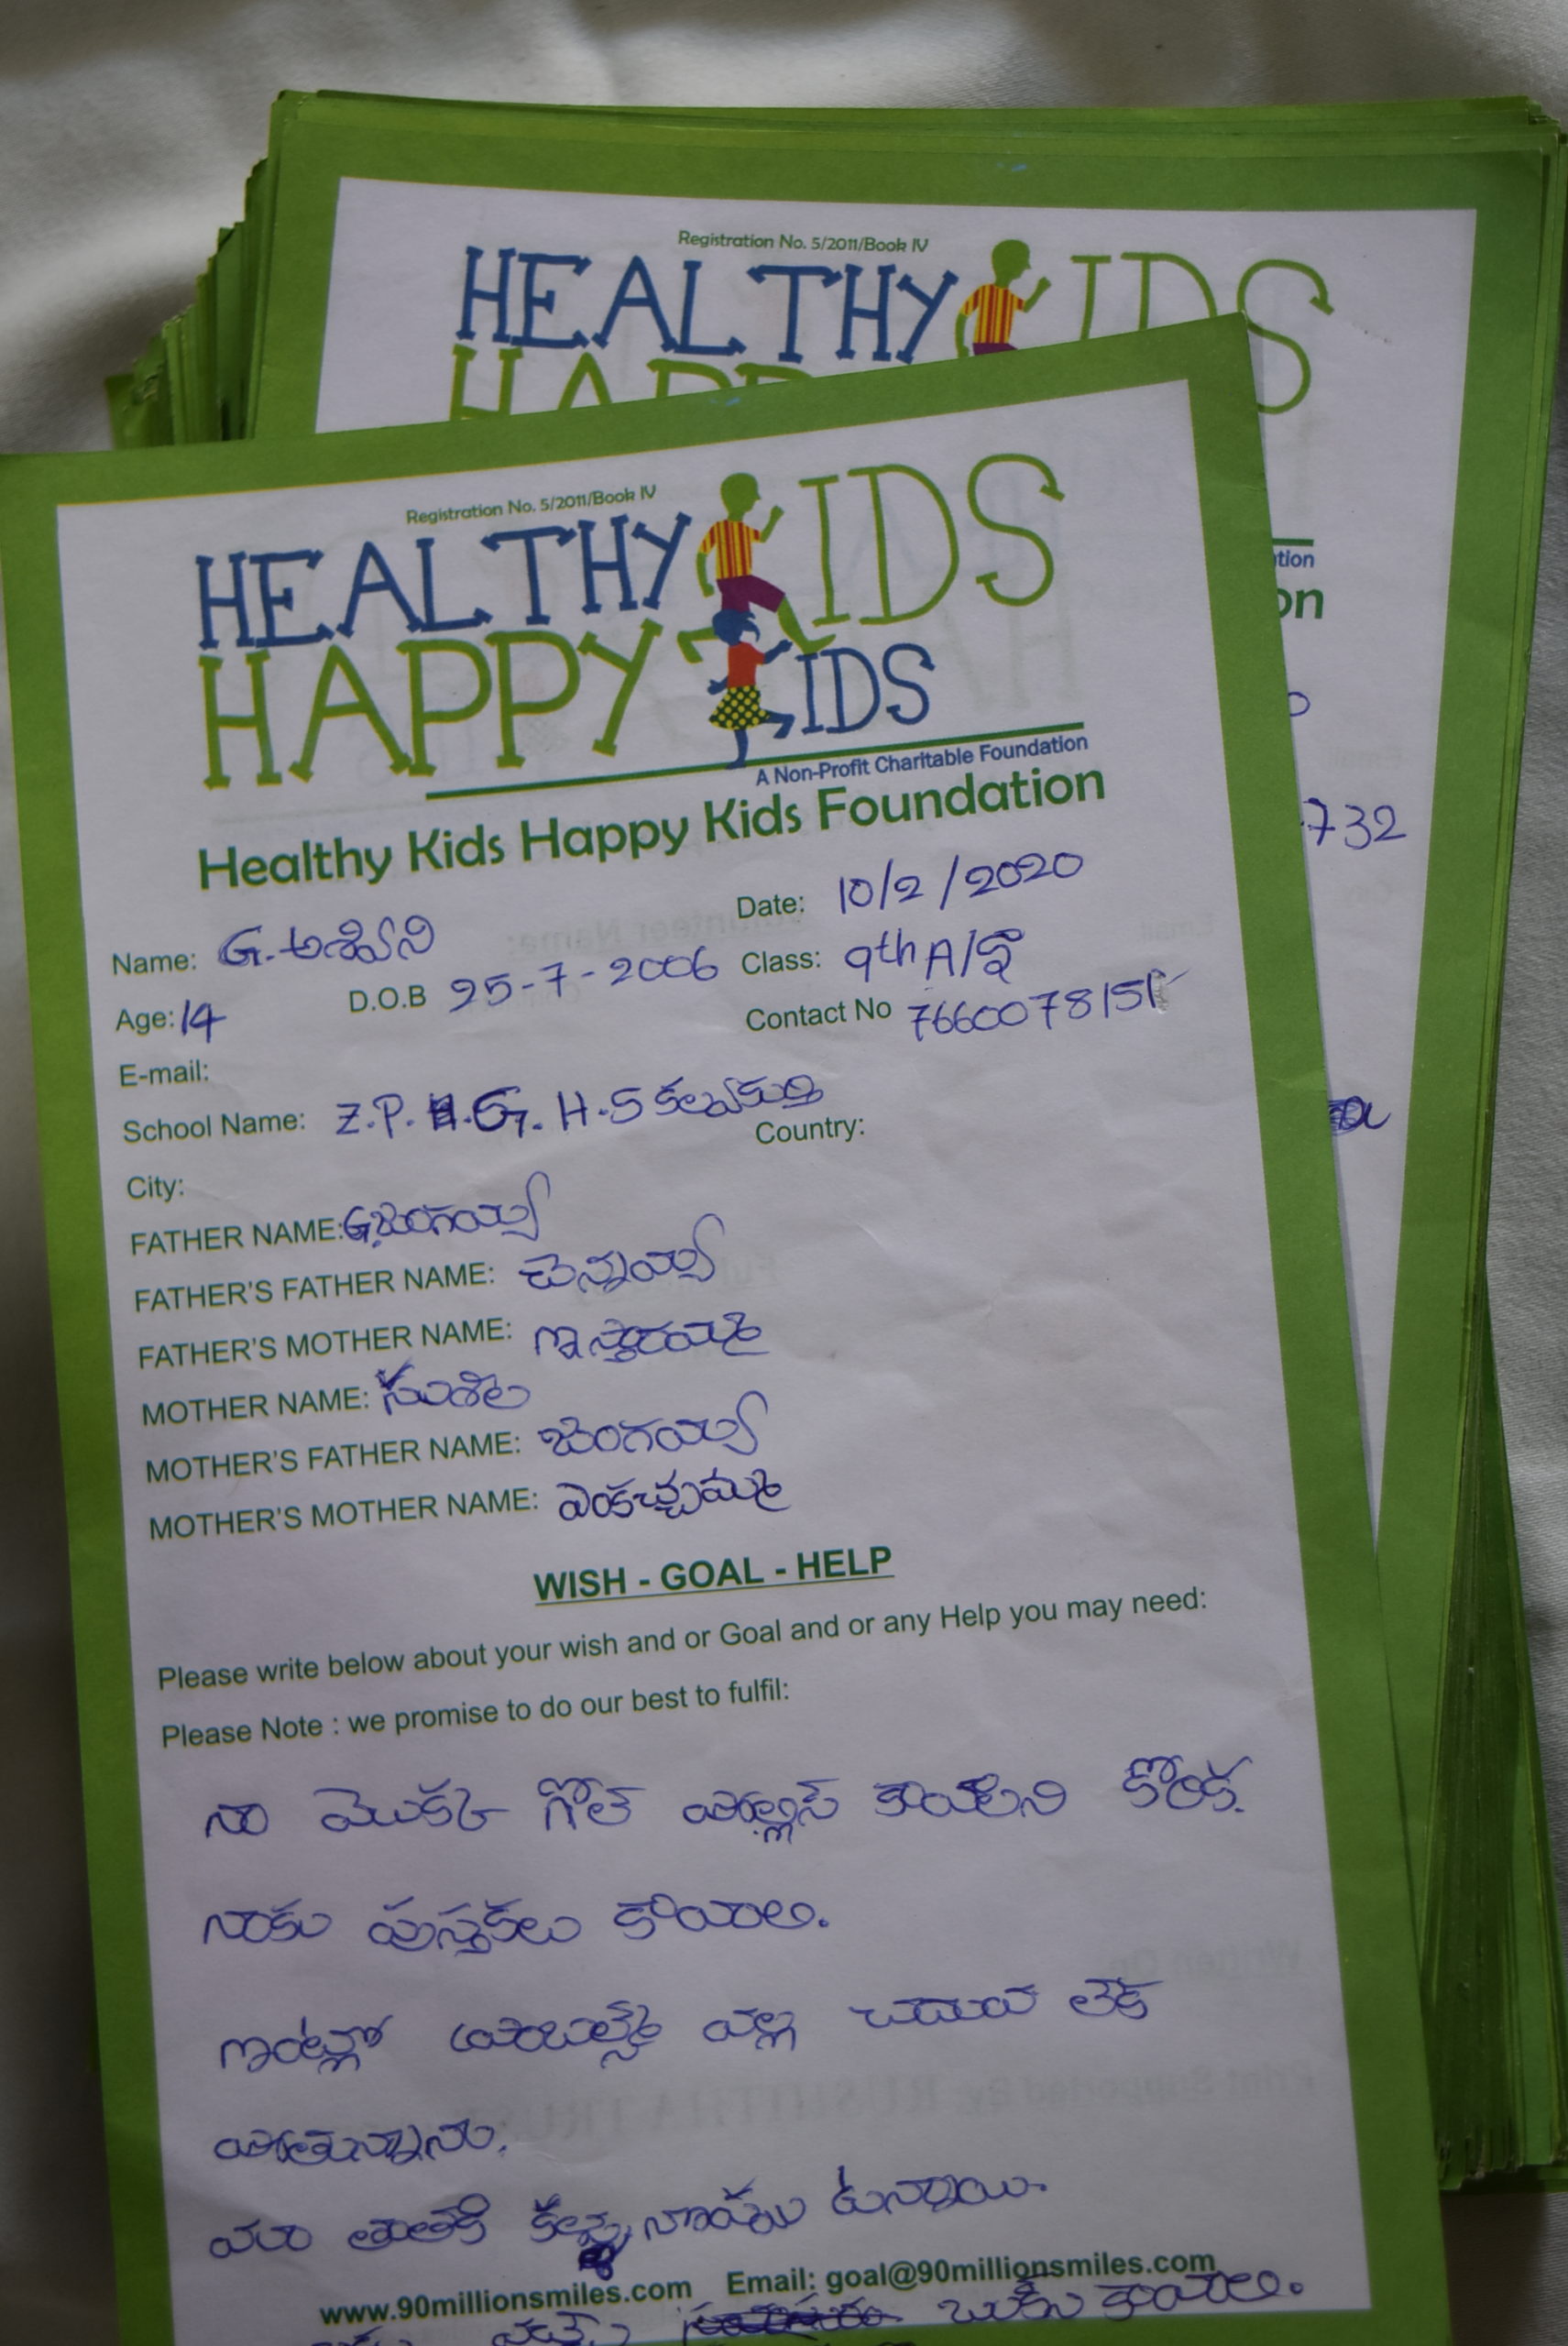 Registration No. 5/2011/Book IV
HEALTHY KIDS
tion
on
732
Registration No. 5/2011/Book IV
HEALTHY KIDS
HAPPY KIDS
A Non-Profit Charitable Foundation
Healthy Kids Happy Kids Foundation
Date: 10/2/2020
Name: G. అశ్విని
Class: 9th A/
Age: 14 D.O.B 25-7-2006
Contact No 7660078151
E-mail:
School Name: Z.P. G. H.S కల్వకుర్తి
Country:
City:
FATHER NAME: G. జంగయ్య
FATHER'S FATHER NAME: చెన్నయ్య
FATHER'S MOTHER NAME:
MOTHER NAME: సుశిల
MOTHER'S FATHER NAME: జంగయ్య
MOTHER'S MOTHER NAME: ఎంకచ్చమ్మ
WISH - GOAL - HELP
Please write below about your wish and or Goal and or any Help you may need:
Please Note : we promise to do our best to fulfil:
నా మొకక్ గోల్ పోల్లిస్ కావాలని కోరిక.
నాకు పుస్తకలు కావాలి.
ఇంట్లో వల్ల చదువ లేక
పోతున్నాను.
మా తాతకి ఉన్నాయి.
www.90millionsmiles.com Email: goal@90millionsmiles.com
బుక్ను కావాలి.